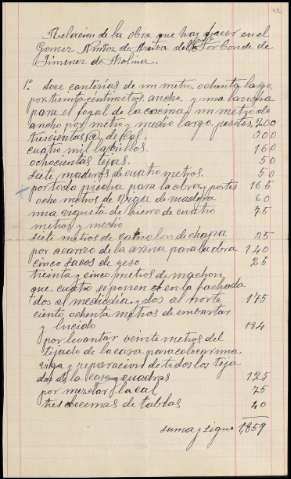 Relacion de la obra que hay hacer en el
de
Jimenez de Molina
1º doce canterias de un metro ochenta largo
por treinta centimetros ancho y una
para el fogal de la cocina un metro de
ancho por metro y medio largo, pesetas 200
trescientas @ de cal 000
cuatro mil ladrillos 160
ochocientas tejas 50
siete maderos de cuatro metros 50
por toda piedra para la obra y portes 165
ocho metros de Viga de madera 60
una viguita de hierro de cuatro 75
metros y medio
siete metros de de chapa 25
por acarreo de la arena para la obra 140
cinco de yeso 25
treinta y cinco metros de
que cuatro se ponen en la fachada
dos al mediodia y dos al norte 175
ciento ochenta metros de
y lucido 184
por levantar veinte metros del
tejado de la casa para colocar una
viga y reparacion de todos los teja
dos de la casa y cuadras 125
por mezclar la cal 75
tres decimas de tablas 40
suma y sigue 1,859